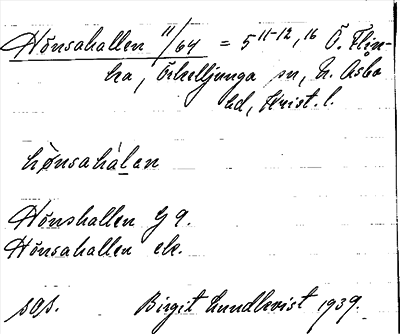 Hönsahallen 11/64 = 5 11-12, 16 Ö. Flin-
ka, Örkelljunga sn, N. Åsbo
hd, Krist. l.
hønsahálen
Hönshallen G 9.
Hönsahallen ek.
sgs. Birgit Lundkvist 1939.